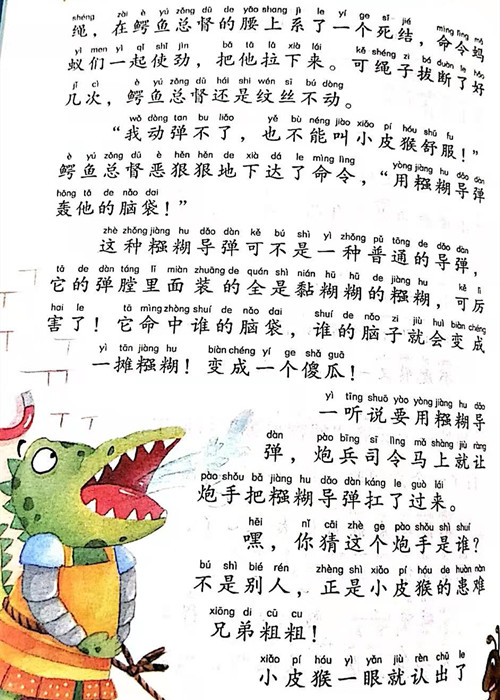 shéng zài è yú zǒng dū de yāo shang jì le yí gè sǐ jié mìng lìng mǎ
绳，在鳄鱼总督的腰上系了一个死结，命令蚂
yǐ men yì qǐ shǐ jìn bǎ tā lā xià lái kě shéng zi bá duàn le hǎo
蚁们一起使劲，把他拉下来。可绳子拔断了好
jǐ cì è yú zǒng dū hái shi wén sī bú dòng
几次，鳄鱼总督还是纹丝不动。
wǒ dòng tan bu liǎo yě bù néng jiào xiǎo pí hóu shū fu
“我动弹不了，也不能叫小皮猴舒服！”
è yú zǒng dū è hěn hěn de xià dá le mìng lìng yòng jiàng hu dǎo dàn
鳄鱼总督恶狠狠地下达了命令，“用糨糊导弹
hōng tā de nǎo dai
轰他的脑袋！”
zhè zhǒng jiàng hu dǎo dàn kě bú shì yì zhǒng pǔ tōng de dǎo dàn
这种糨糊导弹可不是一种普通的导弹，
tā de dàn táng lǐ miàn zhuāng de quán shì nián hū hū de jiàng hu kě lì
它的弹膛里面装的全是黏糊糊的糨糊，可厉
hai le tā mìng zhòng shuí de nǎo dai shuí de nǎo zi jiù huì biàn chéng
害了！它命中谁的脑袋，谁的脑子就会变成
yì tān jiàng hu biàn chéng yí gè shǎ guā
一摊糨糊！变成一个傻瓜！
yì tīng shuō yào yòng jiàng hu dǎo
一听说要用糨糊导
dàn pào bīng sī lìng mǎ shàng jiù ràng
弹，炮兵司令马上就让
pào shǒu bǎ jiàng hu dǎo dàn káng le guò lái
炮手把糨糊导弹扛了过来。
hēi nǐ cāi zhè ge pào shǒu shì shuí
嘿，你猜这个炮手是谁？
bú shì bié rén zhèng shì xiǎo pí hóu de huàn nàn
不是别人，正是小皮猴的患难
xiōng di cū cu
兄弟粗粗！
xiǎo pí hóu yì yǎn jiù rèn chū le
小皮猴一眼就认出了